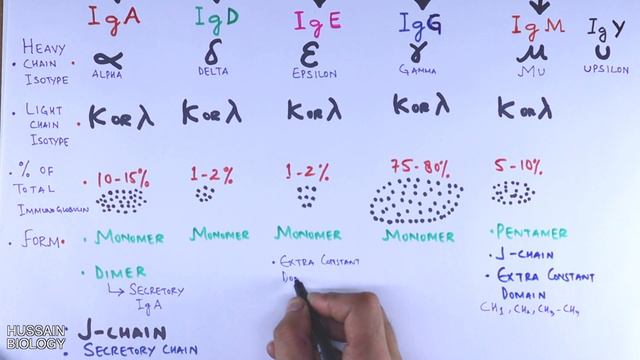 IgA IgD IgE IgG IgM IgY
HEAVY CHAIN ISOTYPE
α δ ε γ μ υ
ALPHA DELTA EPSILON GAMMA MU UPSILON
LIGHT CHAIN ISOTYPE
K OR λ K OR λ K OR λ K OR λ K OR λ
% OF TOTAL IMMUNOGLOBULIN
10-15% 1-2% 1-2% 75-80% 5-10%
FORM
MONOMER MONOMER MONOMER MONOMER PENTAMER
DIMER
SECRETORY
IgA
J-CHAIN
SECRETORY CHAIN
EXTRA CONSTANT
J-CHAIN
EXTRA CONSTANT
DOMAIN
CH1, CH2, CH3-CH4
HUSSAIN
BIOLOGY